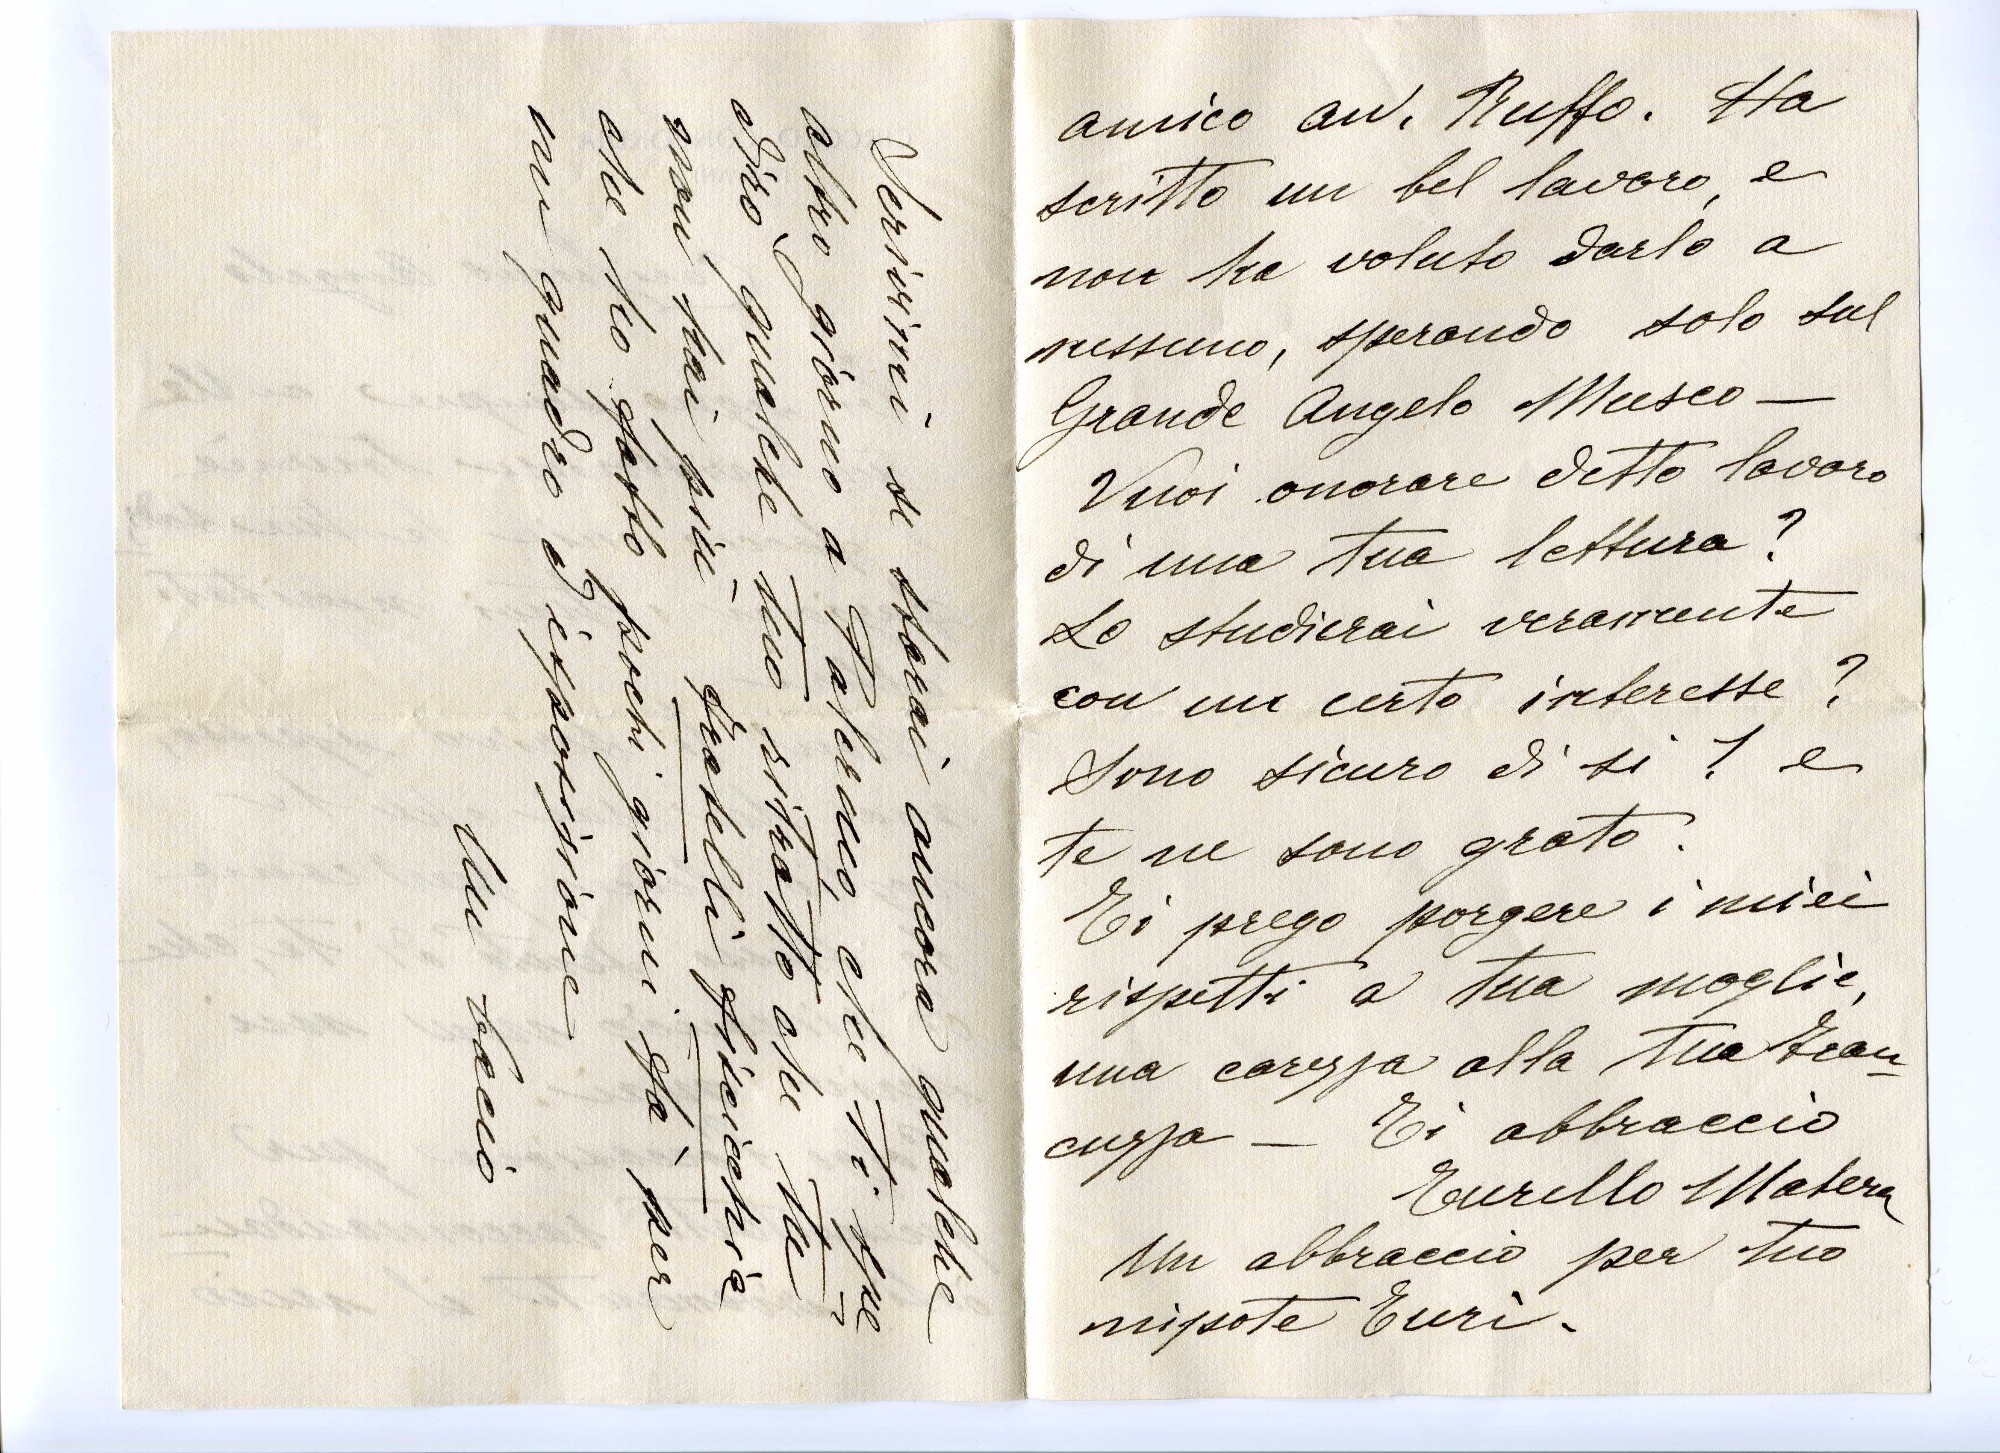 amico av. Ruffo. Ha
scritto un bel lavoro, e
non ha voluto darlo a
nessuno, sperando solo sul
Grande Angelo Musco —
Vuoi onorare detto lavoro
di una tua lettura?
Lo studierai veramente
con un certo interesse?
Sono sicuro di si! e
te ne sono grato.
Ti prego porgere i miei
rispetti a tua moglie,
una carezza alla tua Gran-
cuzza — Ti abbraccio
Turillo Matera
Un abbraccio per tuo
nipote Turi.
Scrivimi se starai ancora qualche
altro giorno a Palermo, che ti spe-
dirò qualche tuo ritratto che tu
non hai più. Fratelli ficicchia
che ho fatto pochi giorni fà per
un quadro d'esposizione
Un bacio